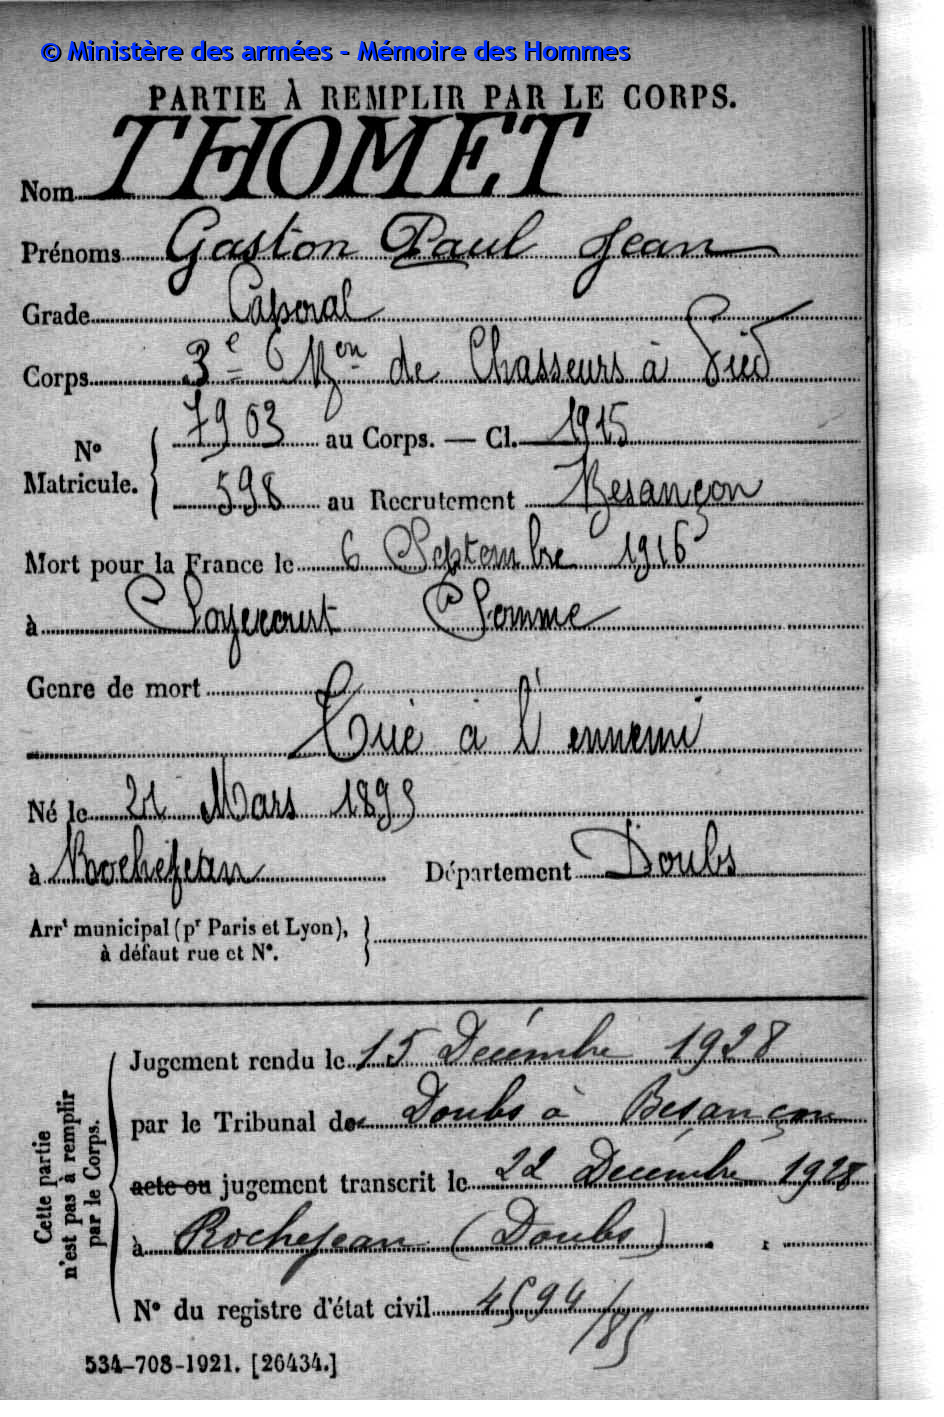 © Ministère des armées - Mémoire des Hommes
PARTIE À REMPLIR PAR LE CORPS.
Nom THOMET
Prénoms Gaston Paul Jean
Grade Caporal
Corps 3e Bon de Chasseurs à Pied
N° Matricule. 7903 au Corps. — Cl. 1915
598 au Recrutement Besançon
Mort pour la France le 6 Septembre 1916
à Soyecourt Somme
Genre de mort
Tué à l'ennemi
Né le 21 Mars 1895
à Rochejean Département Doubs
Arrt municipal (pr Paris et Lyon),
à défaut rue et N°.
Cette partie n'est pas à remplir par le Corps.
Jugement rendu le 15 Décembre 1928
par le Tribunal de Doubs à Besançon
acte ou jugement transcrit le 22 Décembre 1928
à Rochejean (Doubs)
N° du registre d'état civil 4594/85
534-708-1921. [26434.]